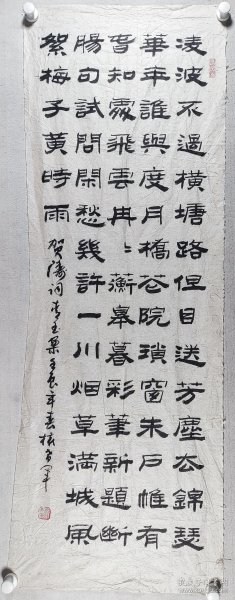 凌波不過橫塘路但目送芳塵去錦瑟
華年誰與度月橋花院瑣窗朱戶惟有
春知處飛雲冉〻蘅皋暮彩筆新題斷
腸句試問閑愁幾許一川烟草滿城風
絮梅子黃時雨
贺鑄词青玉案壬辰年春